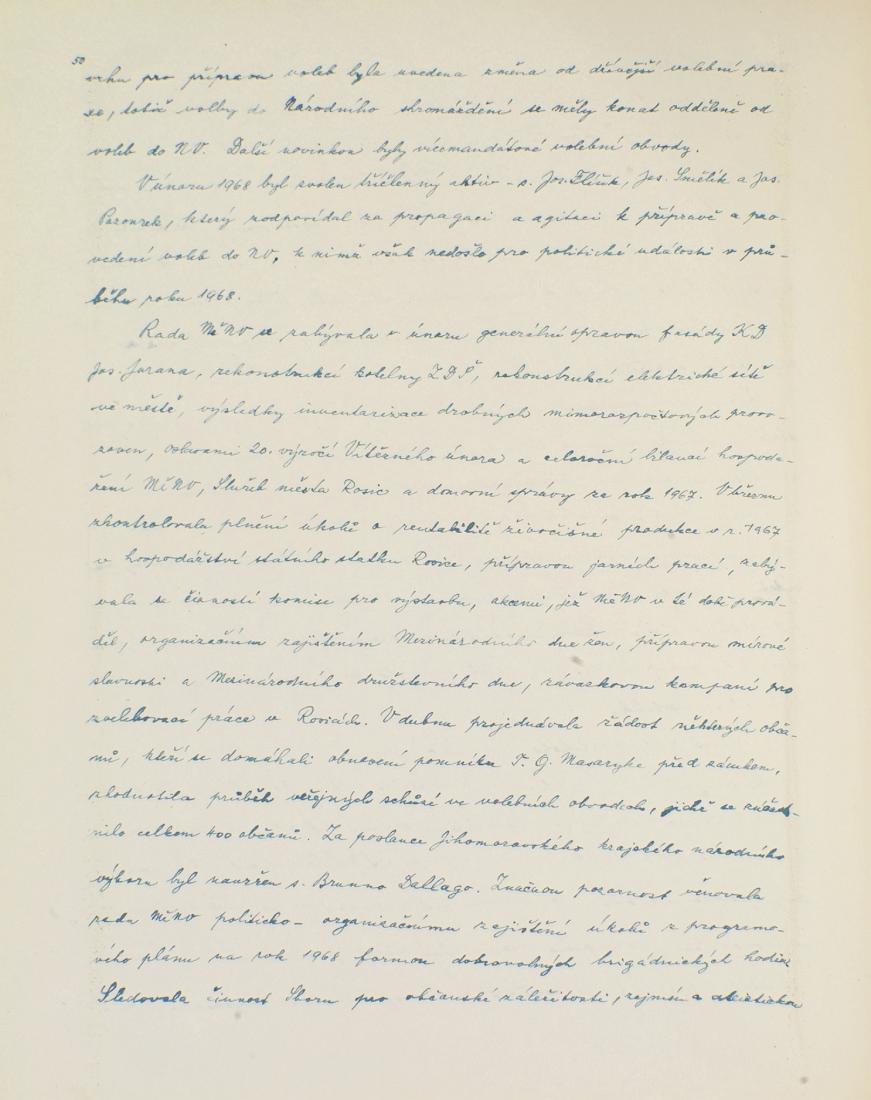 50
vrhu pro přípravu voleb byla uvedena změna od dřívější volební pra-
xe, totiž volby do Národního shromáždění se měly konat odděleně od
voleb do NV. Další novinkou byly vícemandátové volební obvody.
V únoru 1968 byl zvolen tříčlenný aktiv - s. Jos. Jos. Smělík a Jos.
Pazourek, který zodpovídal za propagaci a agitaci k přípravě a pro-
vedení voleb do NV, k nimž však nedošlo pro politické události v prů-
běhu roku 1968.
Rada MěNV se zabývala v únoru generální opravou fasády KD
Jos. Jurana, rekonstrukcí kotelny ZDŠ, rekonstrukcí elektrické sítě
ve městě, výsledky inventarizace drobných mimorozpočtových provo-
zoven, oslavami 20. výročí Vítězného února a celoroční bilancí hospoda-
ření MěNV, Služeb města Rosic a domovní správy za rok 1967. V březnu
zkontrolovala plnění úkolů a rentabilitě živočišné produkce v r. 1967
v hospodářství státního statku Rosice, přípravou jarních prací, zabý-
vala se činností komise pro výstavbu, akcemi, jež MěNV v té době prová-
děl, organizačním zajištěním Mezinárodního dne žen, přípravou mírové
slavnosti a Mezinárodního družstevního dne, závazkovou kampaní pro
zvelebovací práce v Rosicích. V dubnu projednávala žádost některých obča-
nů, kteří se domáhali obnovení pomníku T. G. Masaryka před zámkem,
zhodnotila průběh veřejných schůzí ve volebních obvodech, jichž se zúčast-
nilo celkem 400 občanů. Za poslance Jihomoravského krajského národního
výboru byl navržen s. Brunno Dallago. Značnou pozornost věnovala
rada MěNV politicko - organizačnímu zajištění úkolů z programo-
vého plánu na rok 1968 formou dobrovolných brigádnických hodin.
Sledovala činnost Sboru pro občanské záležitosti, zejména